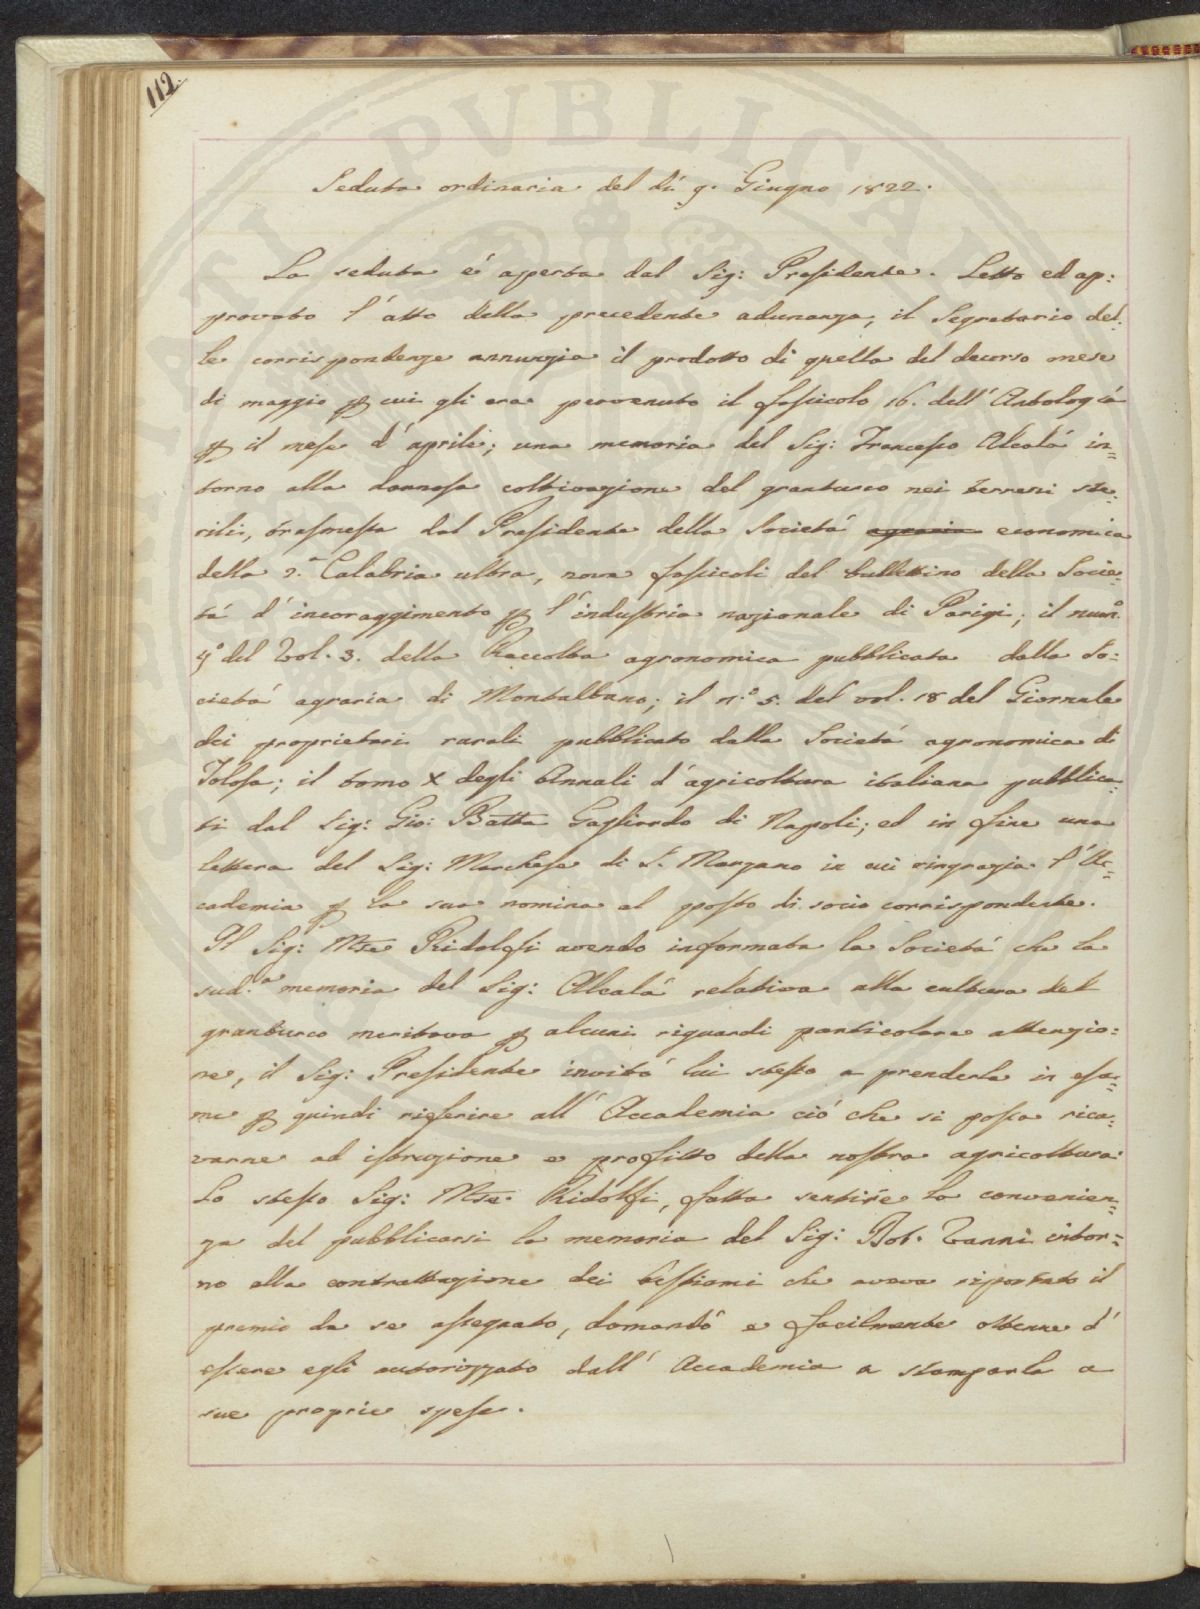 112.
Seduta ordinaria del dì 9. Giugno 1822.
La seduta é aperta dal Sig: Presidente. Letto ed ap:
provato l'atto della precedente adunanza, il Segretario del:
le corrispondenze annunzia il prodotto di quella del decorso mese
di maggio p cui gli era pervenuto il fascicolo 16. dell'Antología
p il mese d'aprile; una memoria del Sig: Francesco Alcalá in=
torno alla dannosa coltivazione del granturco nei terreni ste:
rili, trasmessa dal Presidente della Società agraria economica
della 2.a Calabria ultra, nove fascicoli del bullettino della Socie:
tá d'incoraggimento p l'industria nazionale di Parigi; il num.o
4.o del Vol. 3. della Raccolta agronomica pubblicata dalla So:
cietá agraria di Montalbano; il n.o 5. del vol. 18 del Giornale
dei proprietari rurali pubblicato dalla Societá agronomica di
Tolosa; il tomo X degli Annali d'agricoltura italiana pubblica:
ti dal Sig: Gio: Batta Gagliardo di Napoli; ed in fine una
lettera del Sig: Marchese di S. Marzano in cui ringrazia l'Ac=
cademia p la sua nomina al posto di socio corrispondente.
Il Sig: Mse Ridolfi avendo informata la Societá che la
sud.a memoria del Sig: Alcalá relativa alla cultura del
granturco meritava p alcuni riguardi particolare attenzio:
ne, il Sig: Presidente invitó lui stesso a prenderla in esa=
me p quindi riferire all'Accademia ció che si possa rica:
varne ad istruzione e profitto della nostra agricoltura.
Lo stesso Sig: Mse. Ridolfi, fatta sentire la convenien=
za del pubblicarsi la memoria del Sig: Dot. Vanni intor=
no alla contrattazione dei bestiami che aveva riportato il
premio da se assegnato, domandó e facilmente ottenne d'
essere egli autorizzato dall'Accademia a stamparla a
sue proprie spese.